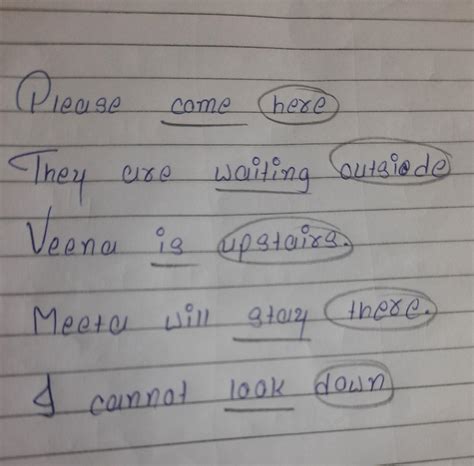 Please come here
They are waiting outside
Veena is upstairs.
Meeta will stay there.
I cannot look down